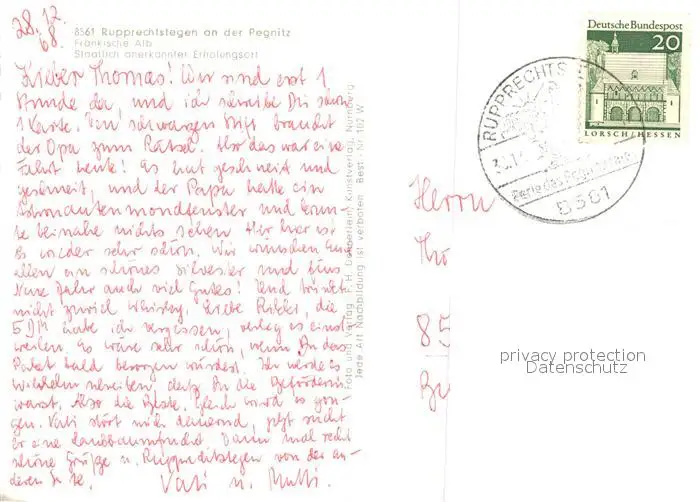 28.12.
68.
8561 Rupprechtstegen an der Pegnitz
Fränkische Alb
Staatlich anerkannter Erholungsort
Lieber Thomas! Wir sind erst 1
Stunde da, und ich schreibe Dir schon
1 Karte. Den schwarzen Stift braucht
der Opa zum Rätsel. Aber das war eine
Fahrt heute! Es hat geschneit und
geschneit, und der Papa hatte ein
Astronautenmondfenster und konn-
te beinahe nichts sehen. Hier
Es wieder sehr schön. Wir wünschen Euch
allen ein schönes Silvester und fürs
Neue Jahr auch viel Gutes! Und trinkt
nicht zuviel Whisky. Liebe die
5 DM habe ich vergessen, verleg es einst
weilen. Es wäre sehr schön, wenn Du das
Paket bald besorgen würdest. Ich werde es
Wilhelm schreiben, daß Du die
warst. Also die Beste. Gleich wird es gan-
gen. Vati stört mich dauernd, jetzt sucht
er eine Dann mal recht
schöne Grüße v. Rupprechtstegen von der an-
deren Seite. Vati u. Mutti.
Foto und Verlag Kunstverlag, Nürnberg
Jede Art Nachbildung ist verboten Best. Nr. 102 W
Deutsche Bundespost
20
LORSCH/HESSEN
RUPPRECHTS
Perle des Pegnitztales
8561
Herrn
Tho
85
privacy protection
Datenschutz